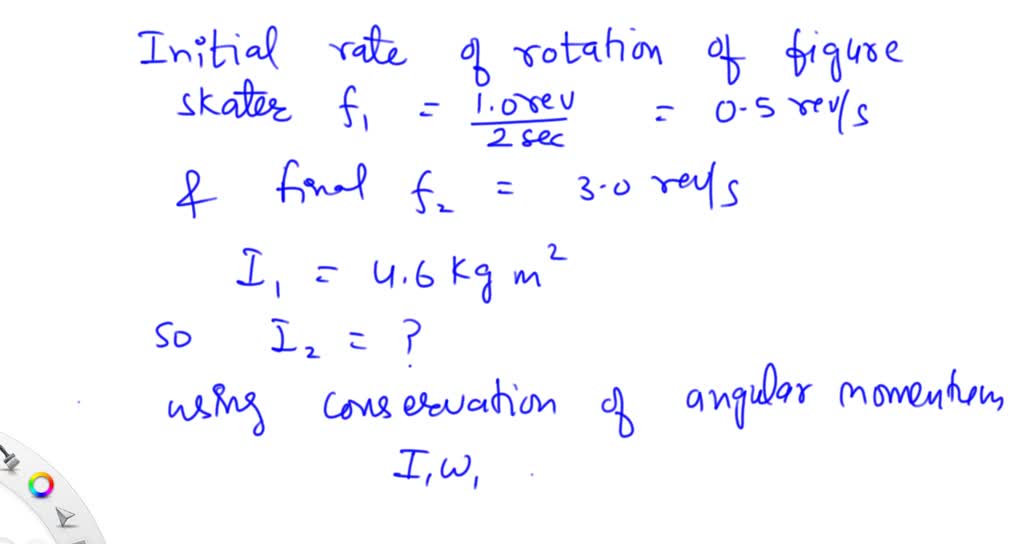 Initial rate of rotation of figure
skater f₁ = 1.0 rev / 2 sec = 0.5 rev/s
& final f₂ = 3.0 rev/s
I₁ = 4.6 kg m²
so I₂ = ?
using conservation of angular momentum
I₁ω₁